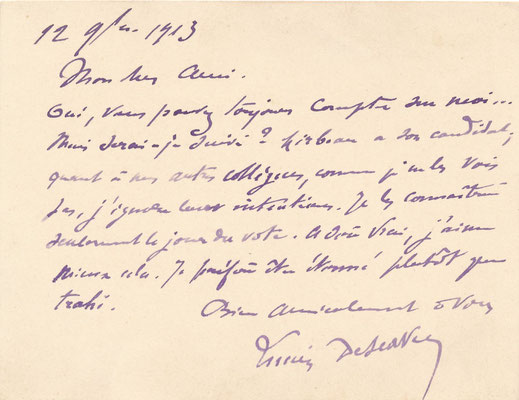 12 9bre 1913
Mon cher ami.
Oui, vous pouvez toujours compter sur moi...
Mais serai-je suivi ? Mirbeau a son candidat;
quant à nos autres collègues, comme je ne les vois
pas, j'ignore leurs intentions. Je les connaîtrai
seulement le jour du vote. A dire vrai, j'aime
mieux cela. Je préfère être étonné plutôt que
trahi.
Bien amicalement à vous
Lucien Descaves